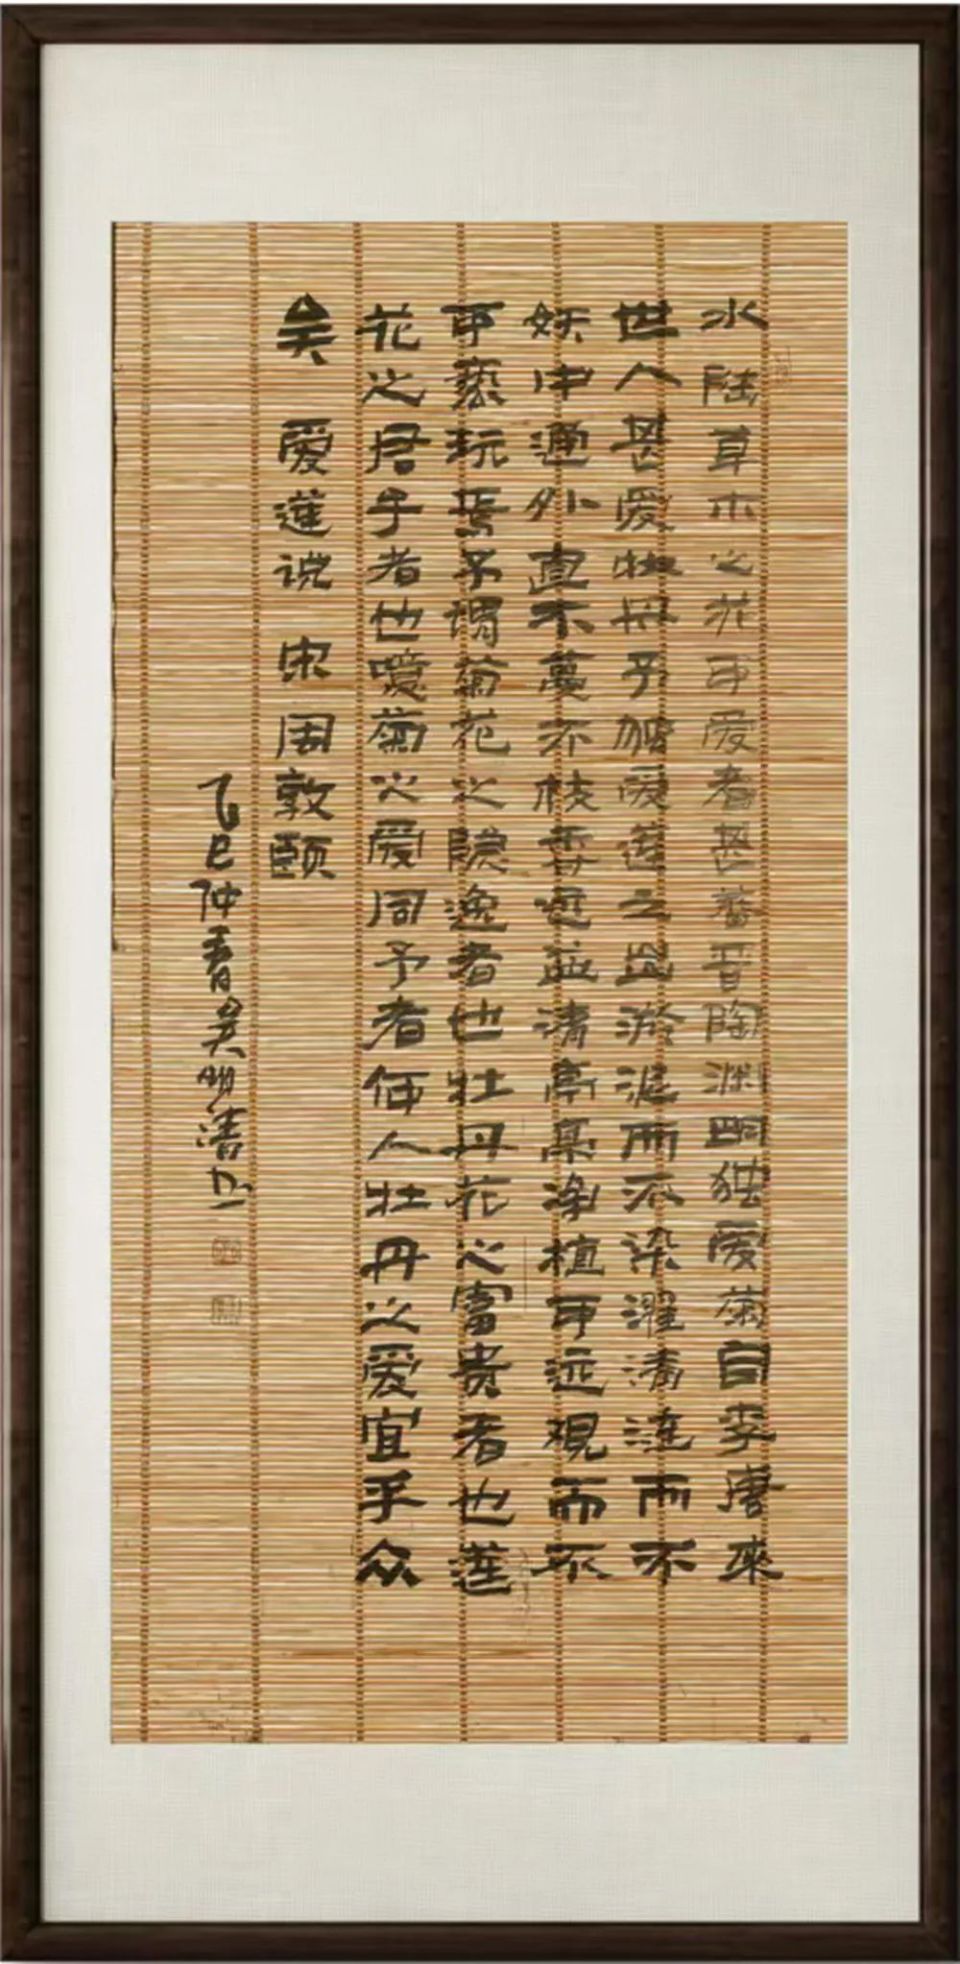 水陆草木之花可爱者甚蕃晋陶渊明独爱菊自李唐来
世人甚爱牡丹予独爱莲之出淤泥而不染濯清涟而不
妖中通外直不蔓不枝香远益清亭亭净植可远觀而不
可亵玩焉予謂菊花之隐逸者也牡丹花之富贵者也莲
花之君子者也噫菊之爱同予者何人牡丹之爱宜乎众
矣 爱莲说 宋 周敦颐
乙巳仲春吴明清书